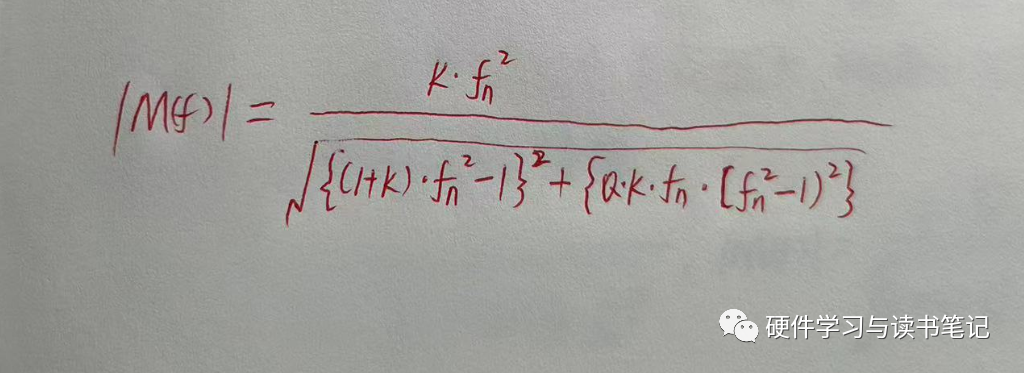 |M(f)| = \frac{K·f_n^2}{\sqrt{\{(1+K)·f_n^2-1\}^2+\{Q·K·f_n·[f_n^2-1)^2\}}}
硬件学习与读书笔记